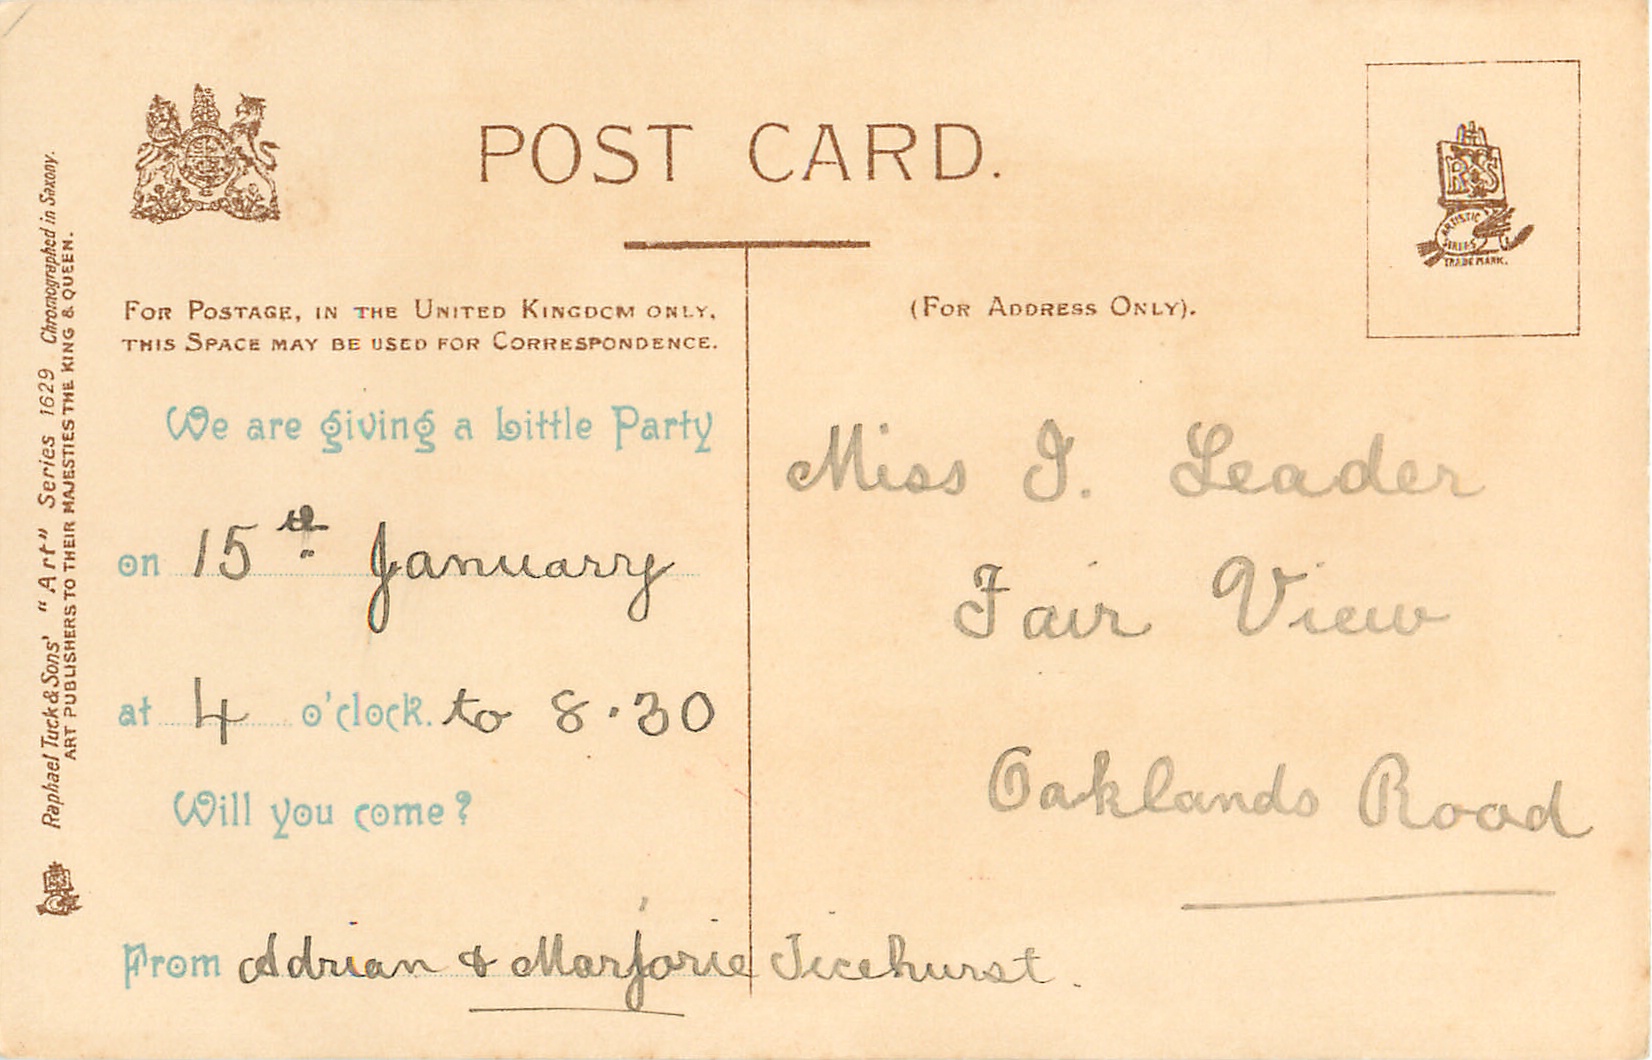 POST CARD.
FOR POSTAGE, IN THE UNITED KINGDOM ONLY,
THIS SPACE MAY BE USED FOR CORRESPONDENCE.
(FOR ADDRESS ONLY).
R T & S
ARTISTIC
SERIES
TRADE MARK.
We are giving a Little Party
on 15th January
at 4 o'clock. to 8.30
Will you come?
From Adrian & Marjorie Ticehurst.
Miss I. Leader
Fair View
Oaklands Road
Raphael Tuck & Sons' "Art" Series 1629 Chromographed in Saxony.
ART PUBLISHERS TO THEIR MAJESTIES THE KING & QUEEN.